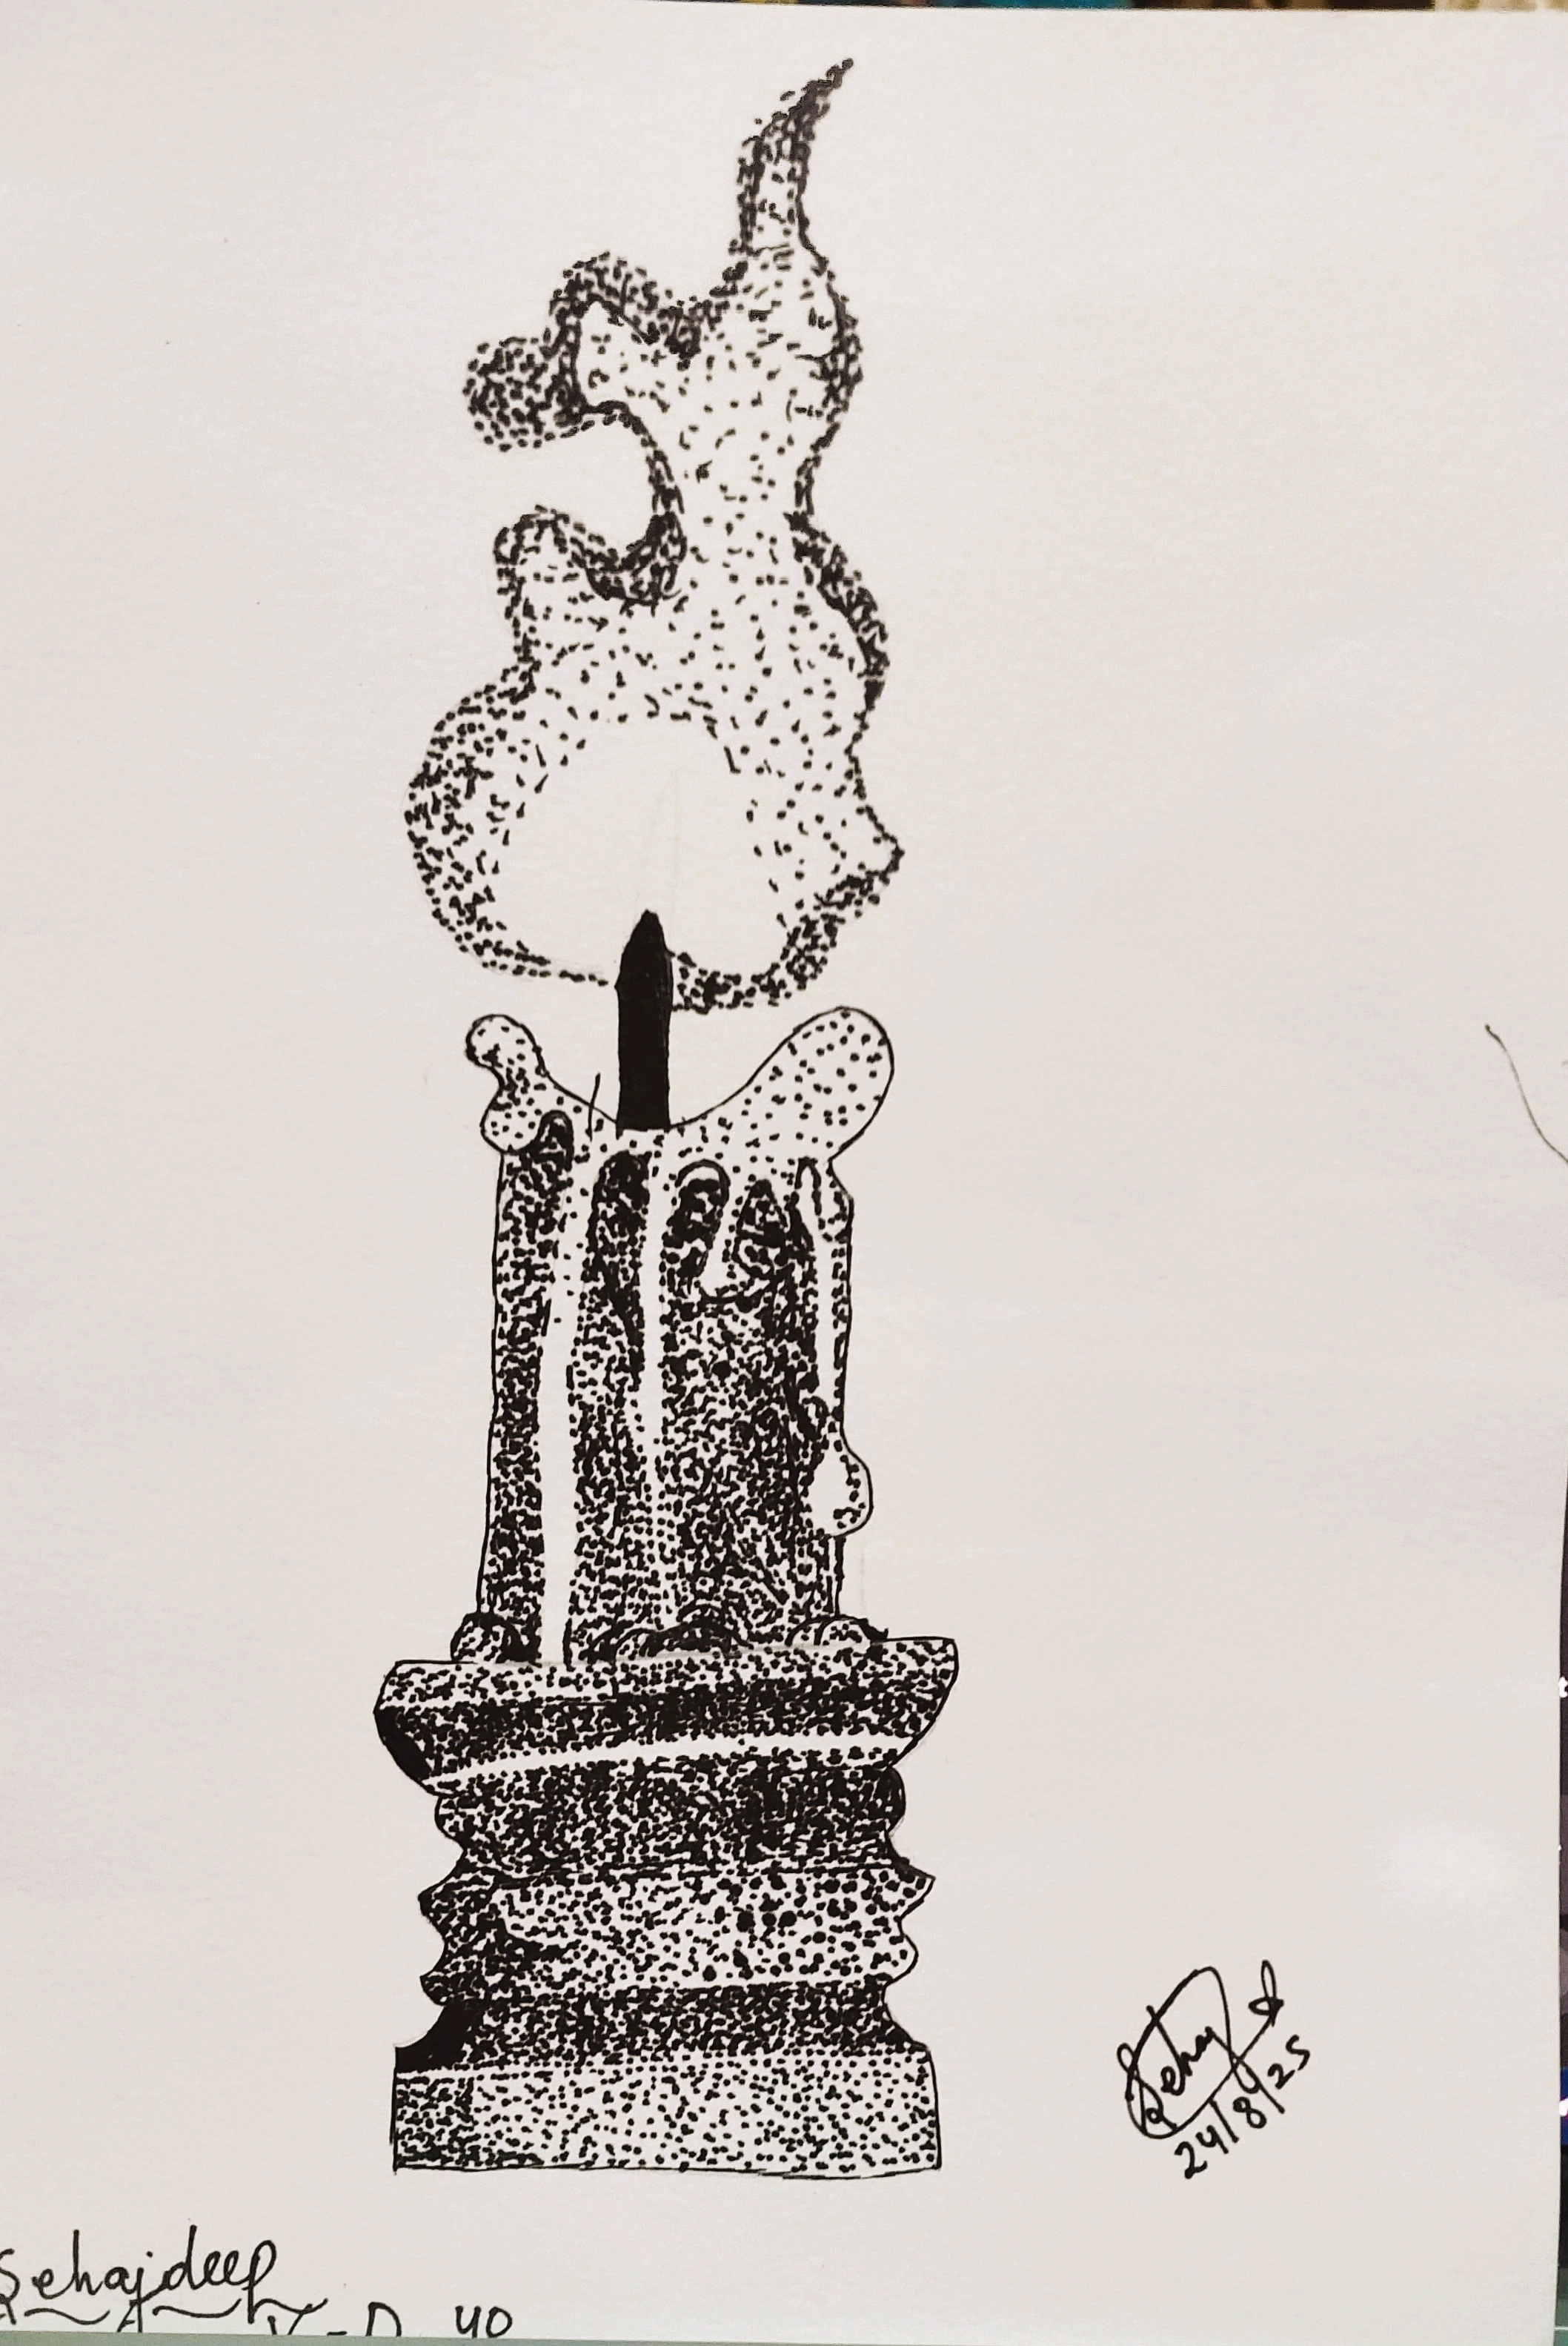 Sehaj
24/8/25
Sehajdeep
V-D 40